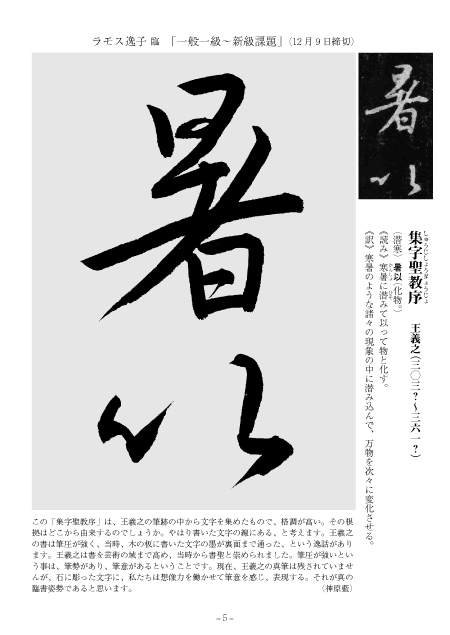 ラモス逸子 臨 「一般一級~新級課題」(12月9日締切)
暑以
暑以
集字聖教序 王羲之(三〇三?~三六一?)
しゅうじしょうぎょうじょ
(潜寒)暑以(化物。)
《読み》寒暑に潜みて以って物と化す。
《訳》寒暑のような諸々の現象の中に潜み込んで、万物を次々に変化させる。
この「集字聖教序」は、王羲之の筆跡の中から文字を集めたもので、格調が高い。その根
拠はどこから由来するのでしょうか。やはり書いた文字の線にある、と考えます。王羲之
の書は筆圧が強く、当時、木の板に書いた文字の墨が裏面まで通った、という逸話があり
ます。王羲之は書を芸術の域まで高め、当時から書聖と崇められました。筆圧が強いとい
う事は、筆勢があり、筆意があるということです。現在、王羲之の真筆は残されていませ
んが、石に彫った文字に、私たちは想像力を働かせて筆意を感じ、表現する。それが真の
臨書姿勢であると思います。 (神原藍)
- 5 -